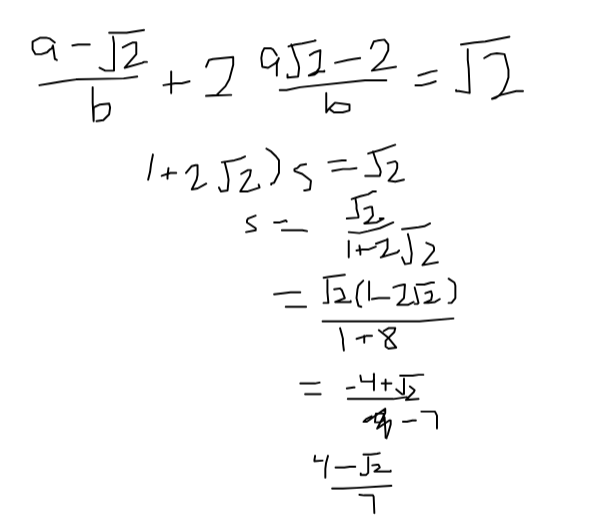 (a-√2)/b + 2 (a√2-2)/b = √2
1+2√2)s = √2
s = √2/(1+2√2)
= √2(1-2√2)/(1+8)
= (-4+√2)/-7
(4-√2)/7